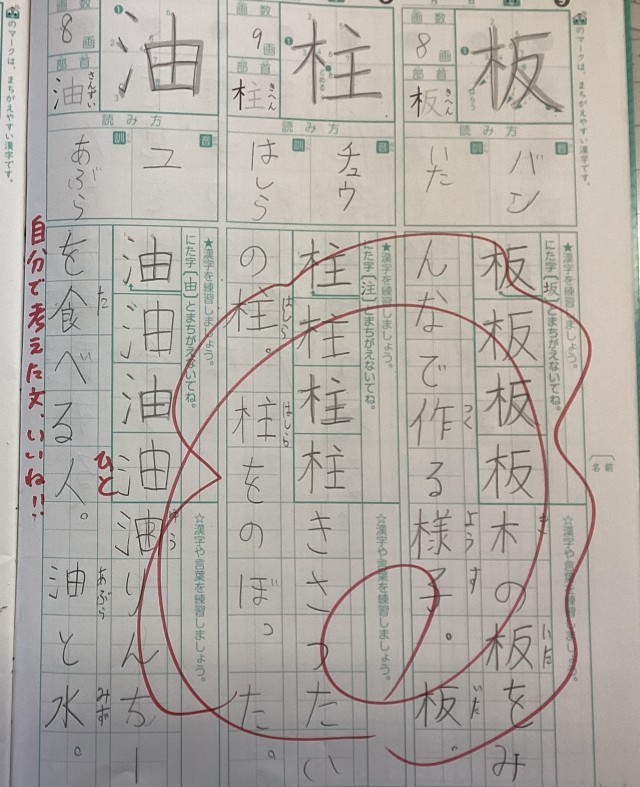 のマークは、まちがえやすい漢字です。
画数
8画
部首
板
きへん
板
読み方
音
バン
訓
いた
名前
★漢字を練習しましょう。
にた字〔坂〕とまちがえないでね。
☆漢字や言葉を練習しましょう。
板板板板木の板をみ
き
いた
んなで作る様子。板。
つく
ようす
いた
画数
9画
部首
柱
きへん
柱
とめる
読み方
音
チュウ
訓
はしら
★漢字を練習しましょう。
にた字〔注〕とまちがえないでね。
☆漢字や言葉を練習しましょう。
柱柱柱柱きさったい
の柱。柱をのぼった。
はしら
はしら
画数
8画
部首
油
さんずい
油
読み方
音
ユ
訓
あぶら
★漢字を練習しましょう。
にた字〔由〕とまちがえないでね。
☆漢字や言葉を練習しましょう。
油油油油油りんちー
ゆう
を食べる人。油と水。
た
ひと
あぶら
みず
自分で考えた文、いいね!!
のマークは、まちがえやすい漢字です。